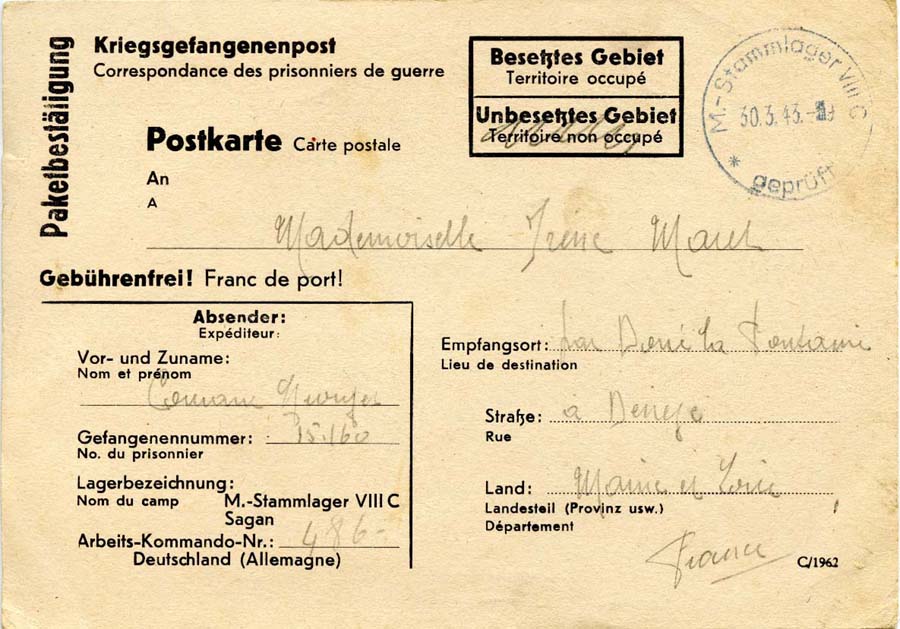 Paketbestätigung
Kriegsgefangenenpost
Correspondance des prisonniers de guerre
Besetztes Gebiet
Territoire occupé
Unbesetztes Gebiet
Territoire non occupé
M.-Stammlager VIII C
30.3.43.
* geprüft
Postkarte Carte postale
An
A
Mademoiselle Irène Maret
Gebührenfrei! Franc de port!
Absender:
Expéditeur:
Vor- und Zuname:
Nom et prénom
Georges
Gefangenennummer: 15.160
No. du prisonnier
Lagerbezeichnung:
Nom du camp M.-Stammlager VIII C
Sagan
Arbeits-Kommando-Nr.: 486-
Deutschland (Allemagne)
Empfangsort: par Doué la Fontaine
Lieu de destination
Straße: à Denezé
Rue
Land: Maine et Loire
Landesteil (Provinz usw.)
Département
France
C/1962